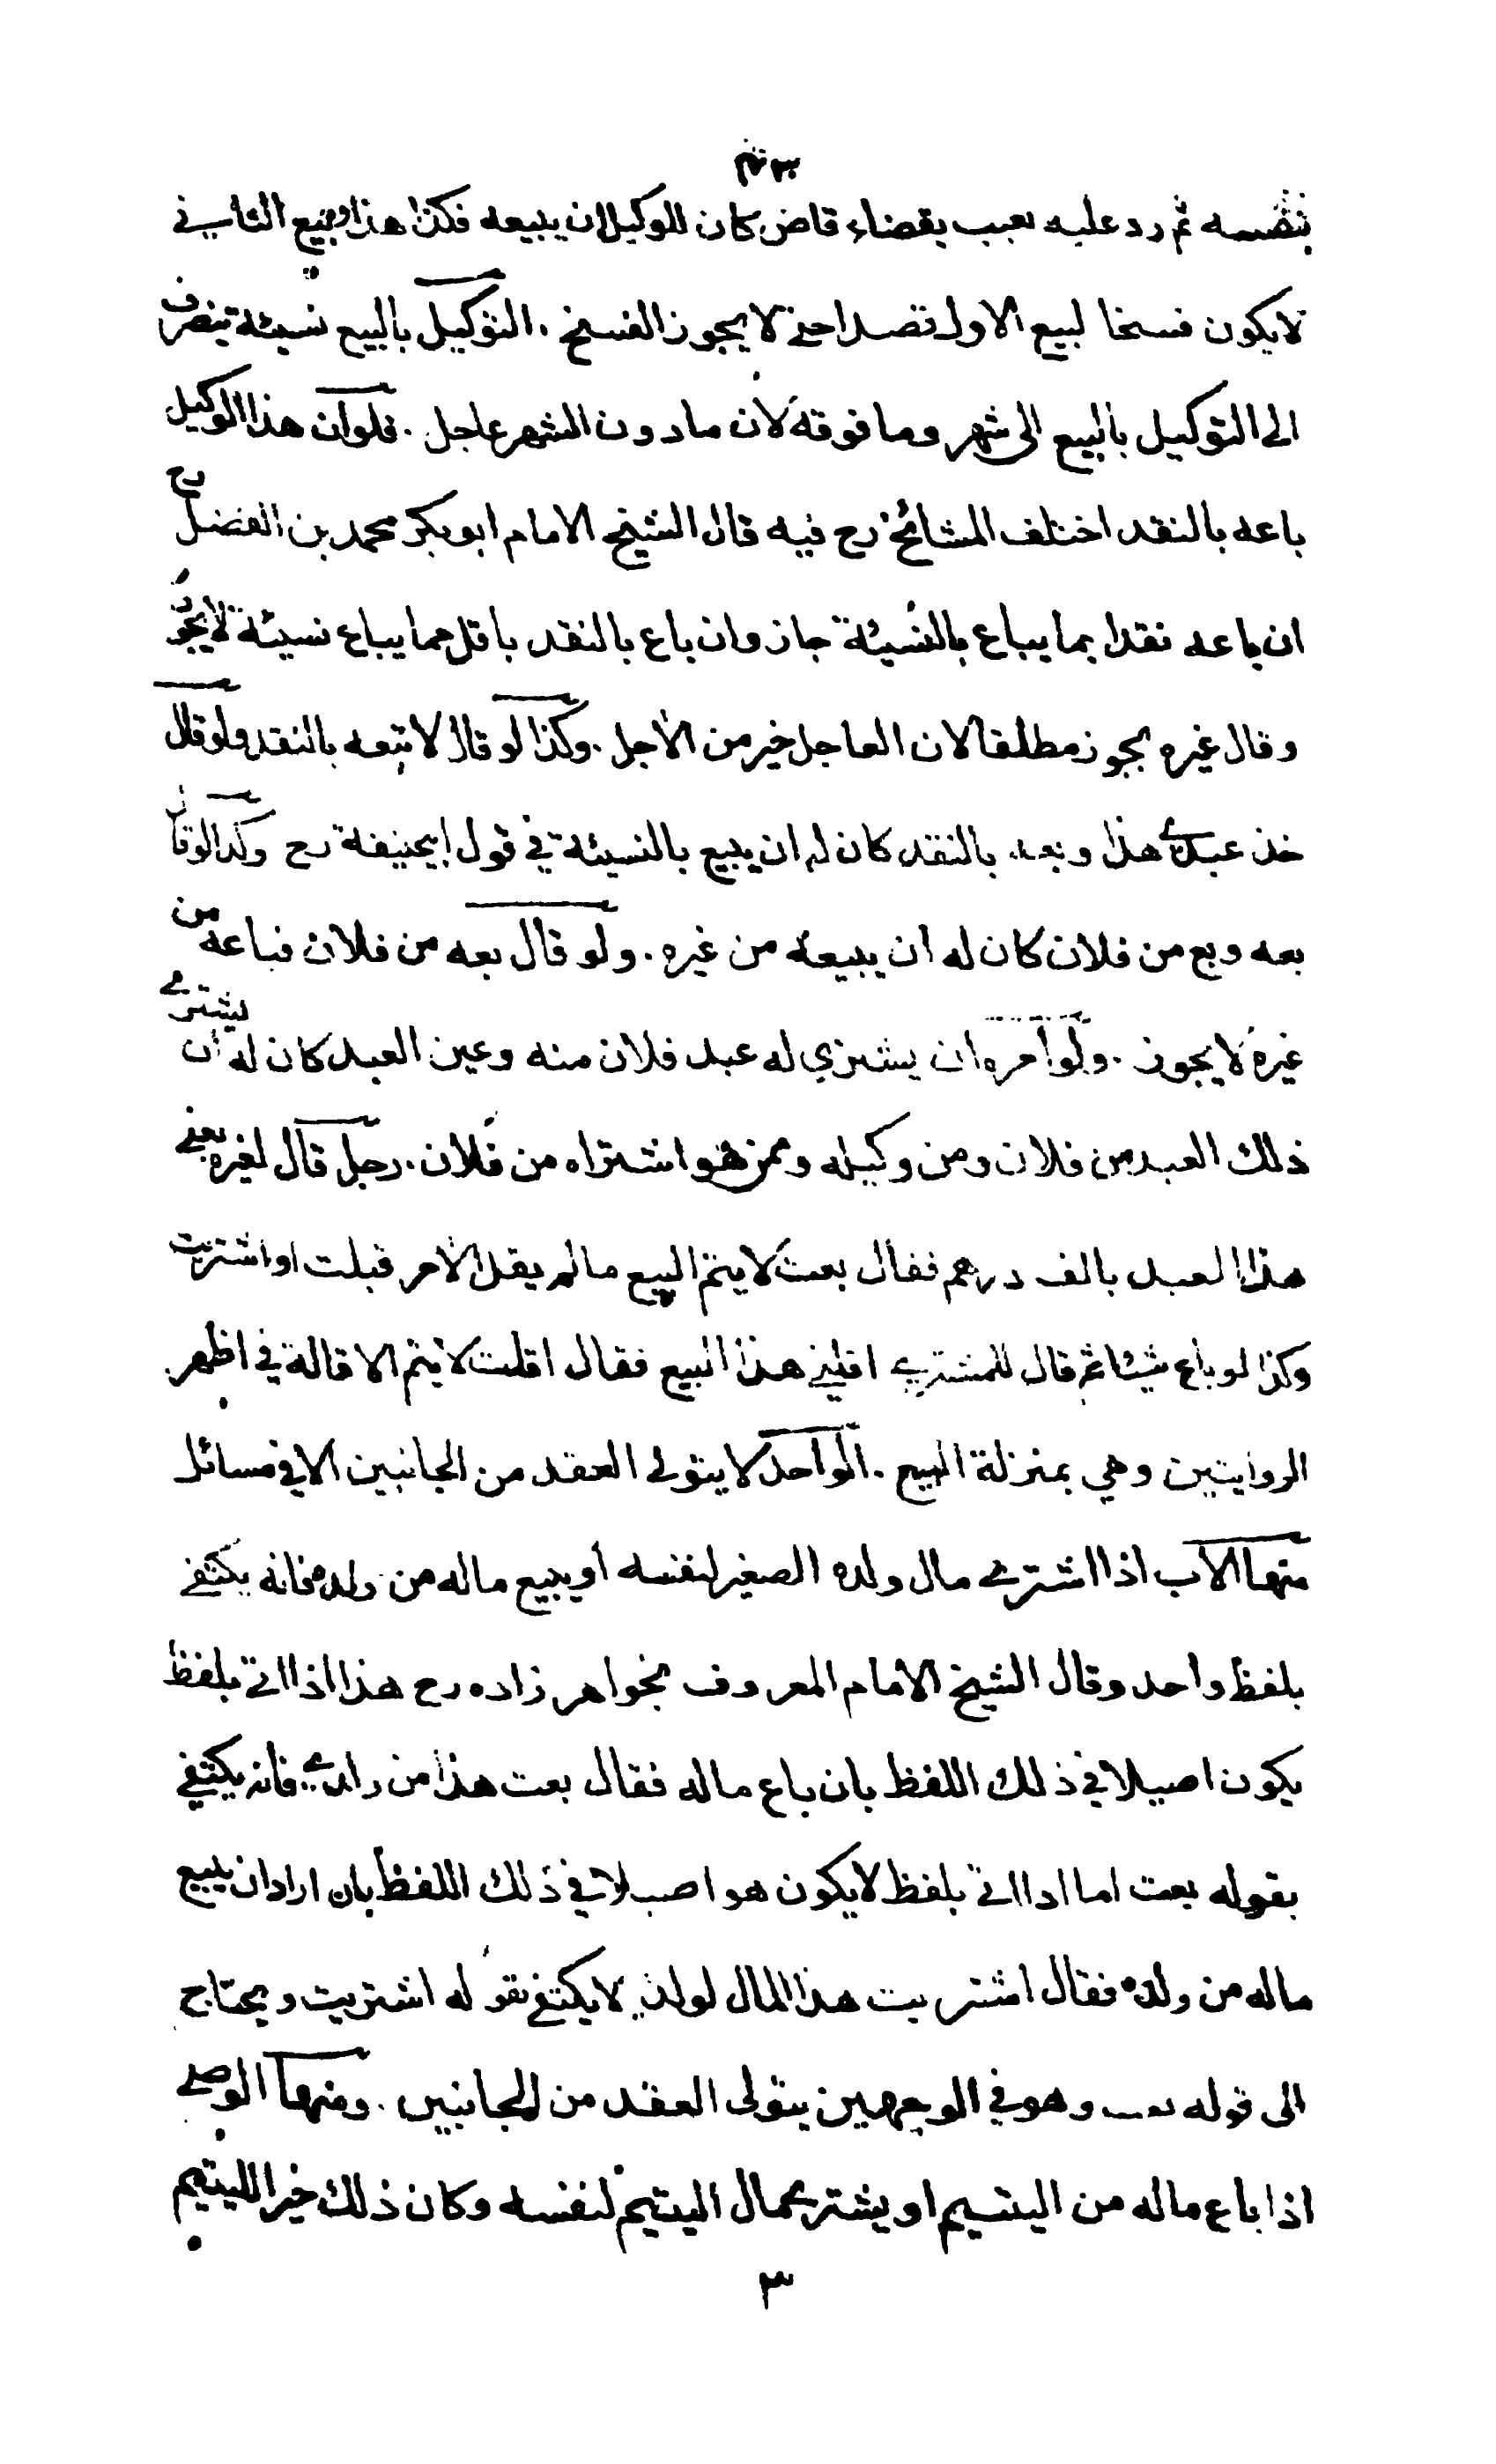 بنفسه ثم رد عليه بعيب بقضاء قاض كان للوكيل ان يبيعه فكذا هذا وبيع الثاني
لا يكون فسخا لبيع الاول قصدا حتى لا يجوز الفسخ . التوكيل بالبيع نسيئة ينصرف
الى التوكيل بالبيع الى شهر وما فوقه لان ما دون الشهر عاجل . فلو ان هذا الوكيل
باعه بالنقد اختلف المشائخ رح فيه قال الشيخ الامام ابو بكر محمد بن الفضل رح
ان باعه نقدا بما يباع بالنسيئة جاز وان باع بالنقد باقل مما يباع نسيئة لا يجوز
وقال غيره يجوز مطلقا لان العاجل خير من الاجل . وكذا لو قال لا تبعه بالنقد ولو قال
خذ عبدي هذا وبعه بالنقد كان له ان يبيع بالنسيئة في قول ابيحنيفة رح وكذا لو قال
بعه وبع من فلان كان له ان يبيعه من غيره . ولو قال بعه من فلان فباعه من
غيره لا يجوز . ولو امره ان يشتري له عبد فلان منه وعين العبد كان له ان يشتري
ذلك العبد من فلان ومن وكيله وممن هو اشتراه من فلان . رجل قال لغيره بعني
هذا العبد بالف درهم فقال بعت لا يتم البيع ما لم يقل الامر قبلت او اشتريت
وكذا لو باع شيئا ثم قال للمشتري اقلني هذا البيع فقال اقلت لا يتم الاقالة في اظهر
الروايتين وهي بمنزلة البيع . الواحد لا يتولى العقد من الجانبين الا في مسائل
منها الاب اذا اشترى مال ولده الصغير لنفسه او يبيع ماله من ولده فانه يكتفى
بلفظ واحد وقال الشيخ الامام المعروف بخواهر زاده رح هذا اذا اتى بلفظ
يكون اصيلا في ذلك اللفظ بان باع ماله فقال بعت هذا من ولدي فانه يكتفي
بقوله بعت اما اذا اتى بلفظ لا يكون هو اصيلا في ذلك اللفظ بان اراد ان يبيع
ماله من ولده فقال اشتريت هذا المال لولدي لا يكتفى بقوله اشتريت ويحتاج
الى قوله بعت وهو في الوجهين يتولى العقد من الجانبين . ومنها الوصي
اذا باع ماله من اليتيم او يشتري مال اليتيم لنفسه وكان ذلك خيرا لليتيم
٣